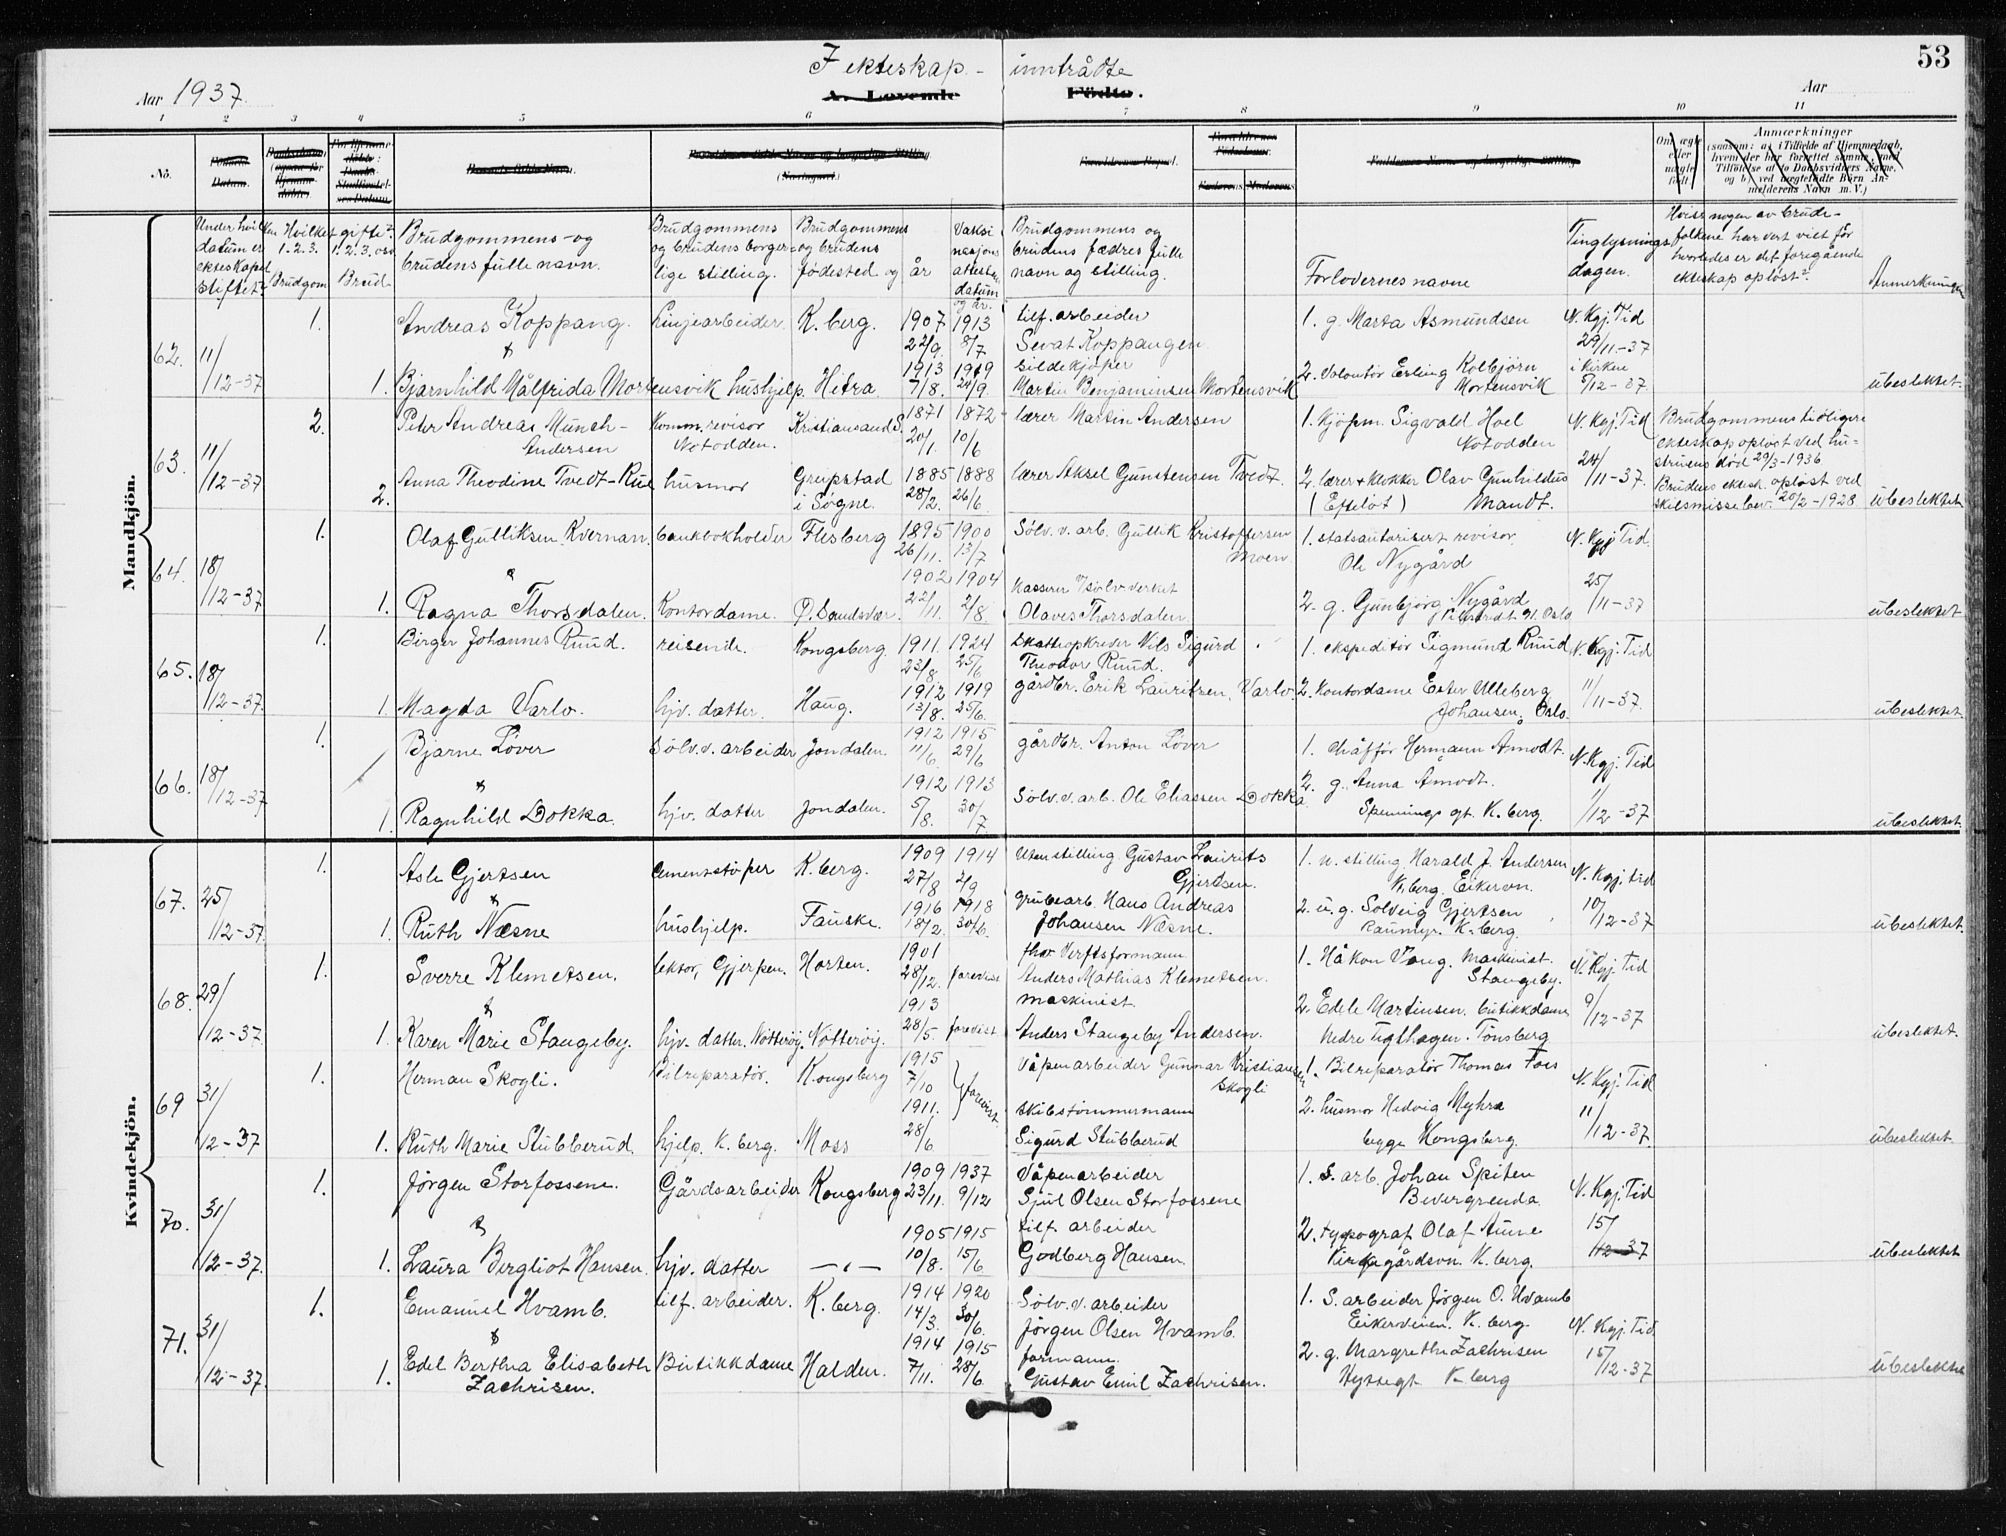 53
I ekteskap - inntrådte
Aar 1937.
A. Levende Födte.
Aar
1 2 3 4 5 6 7 8 9 10 11
No.
Anmærkninger
(saasom: a) i Tilfælde af Hjemmedaab,
hvem der har forrettet samme, med
Tilføielse af to Daabsvidners Navne,
og b) ved uægtefødte Børn An-
melderens Navn m. V.)
Under hvilken datum er ekteskapet stiftet?
Hvilket gifte? 1. 2. 3. Brudgom
1. 2. 3. osv. Brud
Brudgommens og brudens fulle navn.
Brudgommens og brudens borgerlige stilling.
Brudgommens og brudens fødested og år
Vaksinasjons attestens datum og år.
Brudgommens og brudens fædres fulle navn og stilling.
Forlovernes navne
Tinglysningsdagen.
Hvis nogen av brudefolkene har vert viet før hvorledes er det foregående ekteskap opløst?
Anmerkninger
Mandkjön.
62. 11/12-37
1. Andreas Koppang. Linjearbeider. K.berg. 1907 22/9. 1913 8/7 tilf. arbeider Sevat Koppangen 1. g. Marta Asmundsen N. Kgj. Tid 29/11-37
1. Bjarnhild Målfrida Mortensvik hushjelp. Hitra 1913 7/8. 1919 24/9. Sildekjøper Martin Benjaminsen Mortensvik 2. Volontør Erling Kolbjörn Mortensvik i kirken 5/12-37. ubeslektet.
63. 11/12-37
2. Peter Andreas Münch-Andersen Komm. revisor Notodden. Kristiansand S. 1871 20/1. 1872 10/6 lærer Martin Andersen 1. Kjøpm. Sigvald Hoel Notodden N. Kgj. Tid 24/11-37. Brudgommens tidligere ekteskap opløst ved hustruens død 29/3-1936
2. Anna Theodine Tvedt-Rue husmor Greipstad i Søgne. 1885 28/2. 1888 26/6 lærer Aksel Gunstensen Tvedt. 2. lærer + klokker Olav Gunhildus Mandt. (Efteløt) Brudens ektesk. opløst ved skilsmissebev. 20/2-1928 ubeslektet
64. 18/12-37
1. Olaf Gulliksen Kvernan. bankbokholder Flesberg 1895 26/11. 1900 13/7 Sølv. v. arb. Gullik Kristoffersen Moen 1. statsautorisert revisor. Ole Nygård N. Kgj Tid. 25/11-37
1. Ragna Thorsdalen. Kontordame. Ø. Sandsvær. 1902 22/11. 1904 2/8. Kasserer v/sølvverket Olaves Thorsdalen. 2. g. Gunbjørg Nygård Oslo ubeslektet
65. 18/12-37.
1. Birger Johannes Ruud. reisende. Kongsberg. 1911. 23/8. 1924 25/6 Skatteopkrever Nils Sigurd Theodor Ruud. 1. ekspeditör Sigmund Ruud N. Kgj. Tid 11/11-37.
1. Magda Varlo. hjv. datter. Haug. 1912 13/8. 1919 25/6. gårdbr. Erik Lauritzen Varlo. 2. Kontordame Ester Ulleberg Johansen, Oslo. ubeslektet.
66. 18/12-37
1. Bjarne Løver Sölv. v. arbeider Jondalen. 1912 11/6. 1915 29/6 gårdbr. Anton Løver 1. Chåffør Hermann Åmodt. N. Kgj. Tid 1/12-37
1. Ragnhild Dokka. hjv. datter Jondalen. 1912 5/8. 1913 30/7 Sølv. v. arb. Ole Eliassen Dokka 2. g. Anna Åmodt. Spennings gt. K. berg. ubeslektet.
Kvindekjön.
67. 25/12-37
1. Asle Gjertsen Cementstøper K. berg. 1909 27/8 1914 2/9 Uten stilling Gustav Laurits Gjertsen. 1. u. stilling Harald J. Andersen K. berg. Eikervn. N. Kgj. tid 10/12-37
1. Ruth Næsne hushjelp. Fauske. 1916 18/2. 1918 30/6. Grubearb. Hans Andreas Johansen Næsne. 2. u. g. Solveig Gjertsen Raumyr. K. berg ubeslektet.
68. 29/12-37
1. Sverre Klemetsen. lektor, Gjerpen. Horten. 1901 28/12. forevist fhv Verftsformann Anders Mathias Klemetsen. 1. Håkon Vong. maskinist. Stangeby. N. Kgj. Tid 9/12-37
1. Karen Marie Stangeby. hjv. datter. Nötterøy. Nötterøy. 1913 28/5. forevist maskinist. Anders Stangeby Andersen. 2. Edele Martinsen. butikkdame nedre Tigthagen. Tönsberg ubeslektet.
69 31/12-37
1. Herman Skogli. Bilreparatør. Kongsberg 1915 7/10 forevist. Våpenarbeider Gunnar Kristiansen Skogli 1. Bilreparatør Thomas Foss N. Kgj. Tid 11/12-37.
1. Ruth Marie Stubberud. hjelp. K. berg. Moss 1911. 28/6 Skibstømmermann Sigurd Stubberud 2. husmor Hedvig Myhra begge Kongsberg. ubeslektet.
70. 31/12-37.
1. Jørgen Storfossene. Gårdsarbeider Kongsberg 1909 23/11. 1937 9/12 Våpenarbeider Sjul Olsen Storfossene 1. S. arb. Johan Spiten Bevergrenda N. Kgj. Tid 15/12-37
1. Laura Bergliot Hansen. hjv. datter —"— 1905 10/8. 1915 15/6 tilf. arbeider Godberg Hansen. 2. typograf Olaf Aune Kirkegårdsvn. K. berg. ubeslektet
71. 31/12-37.
1. Emanuel Hvamb. tilf. arbeider. K. berg. 1914 14/3. 1920 30/6. Sølv. v. arbeider Jørgen Olsen Hvamb. 1. S. arbeider Jörgen O. Hvamb Eikerveien. K. berg. N. Kgj. Tid. 15/12-37
1. Edel Bertha Elisabeth Zachrisen. Butikkdame Halden. 1914 7/11. 1915 28/6 formann. Gustav Emil Zachrisen. 2. g. Margrethe Zachrisen Hyttegt K-berg ubeslektet